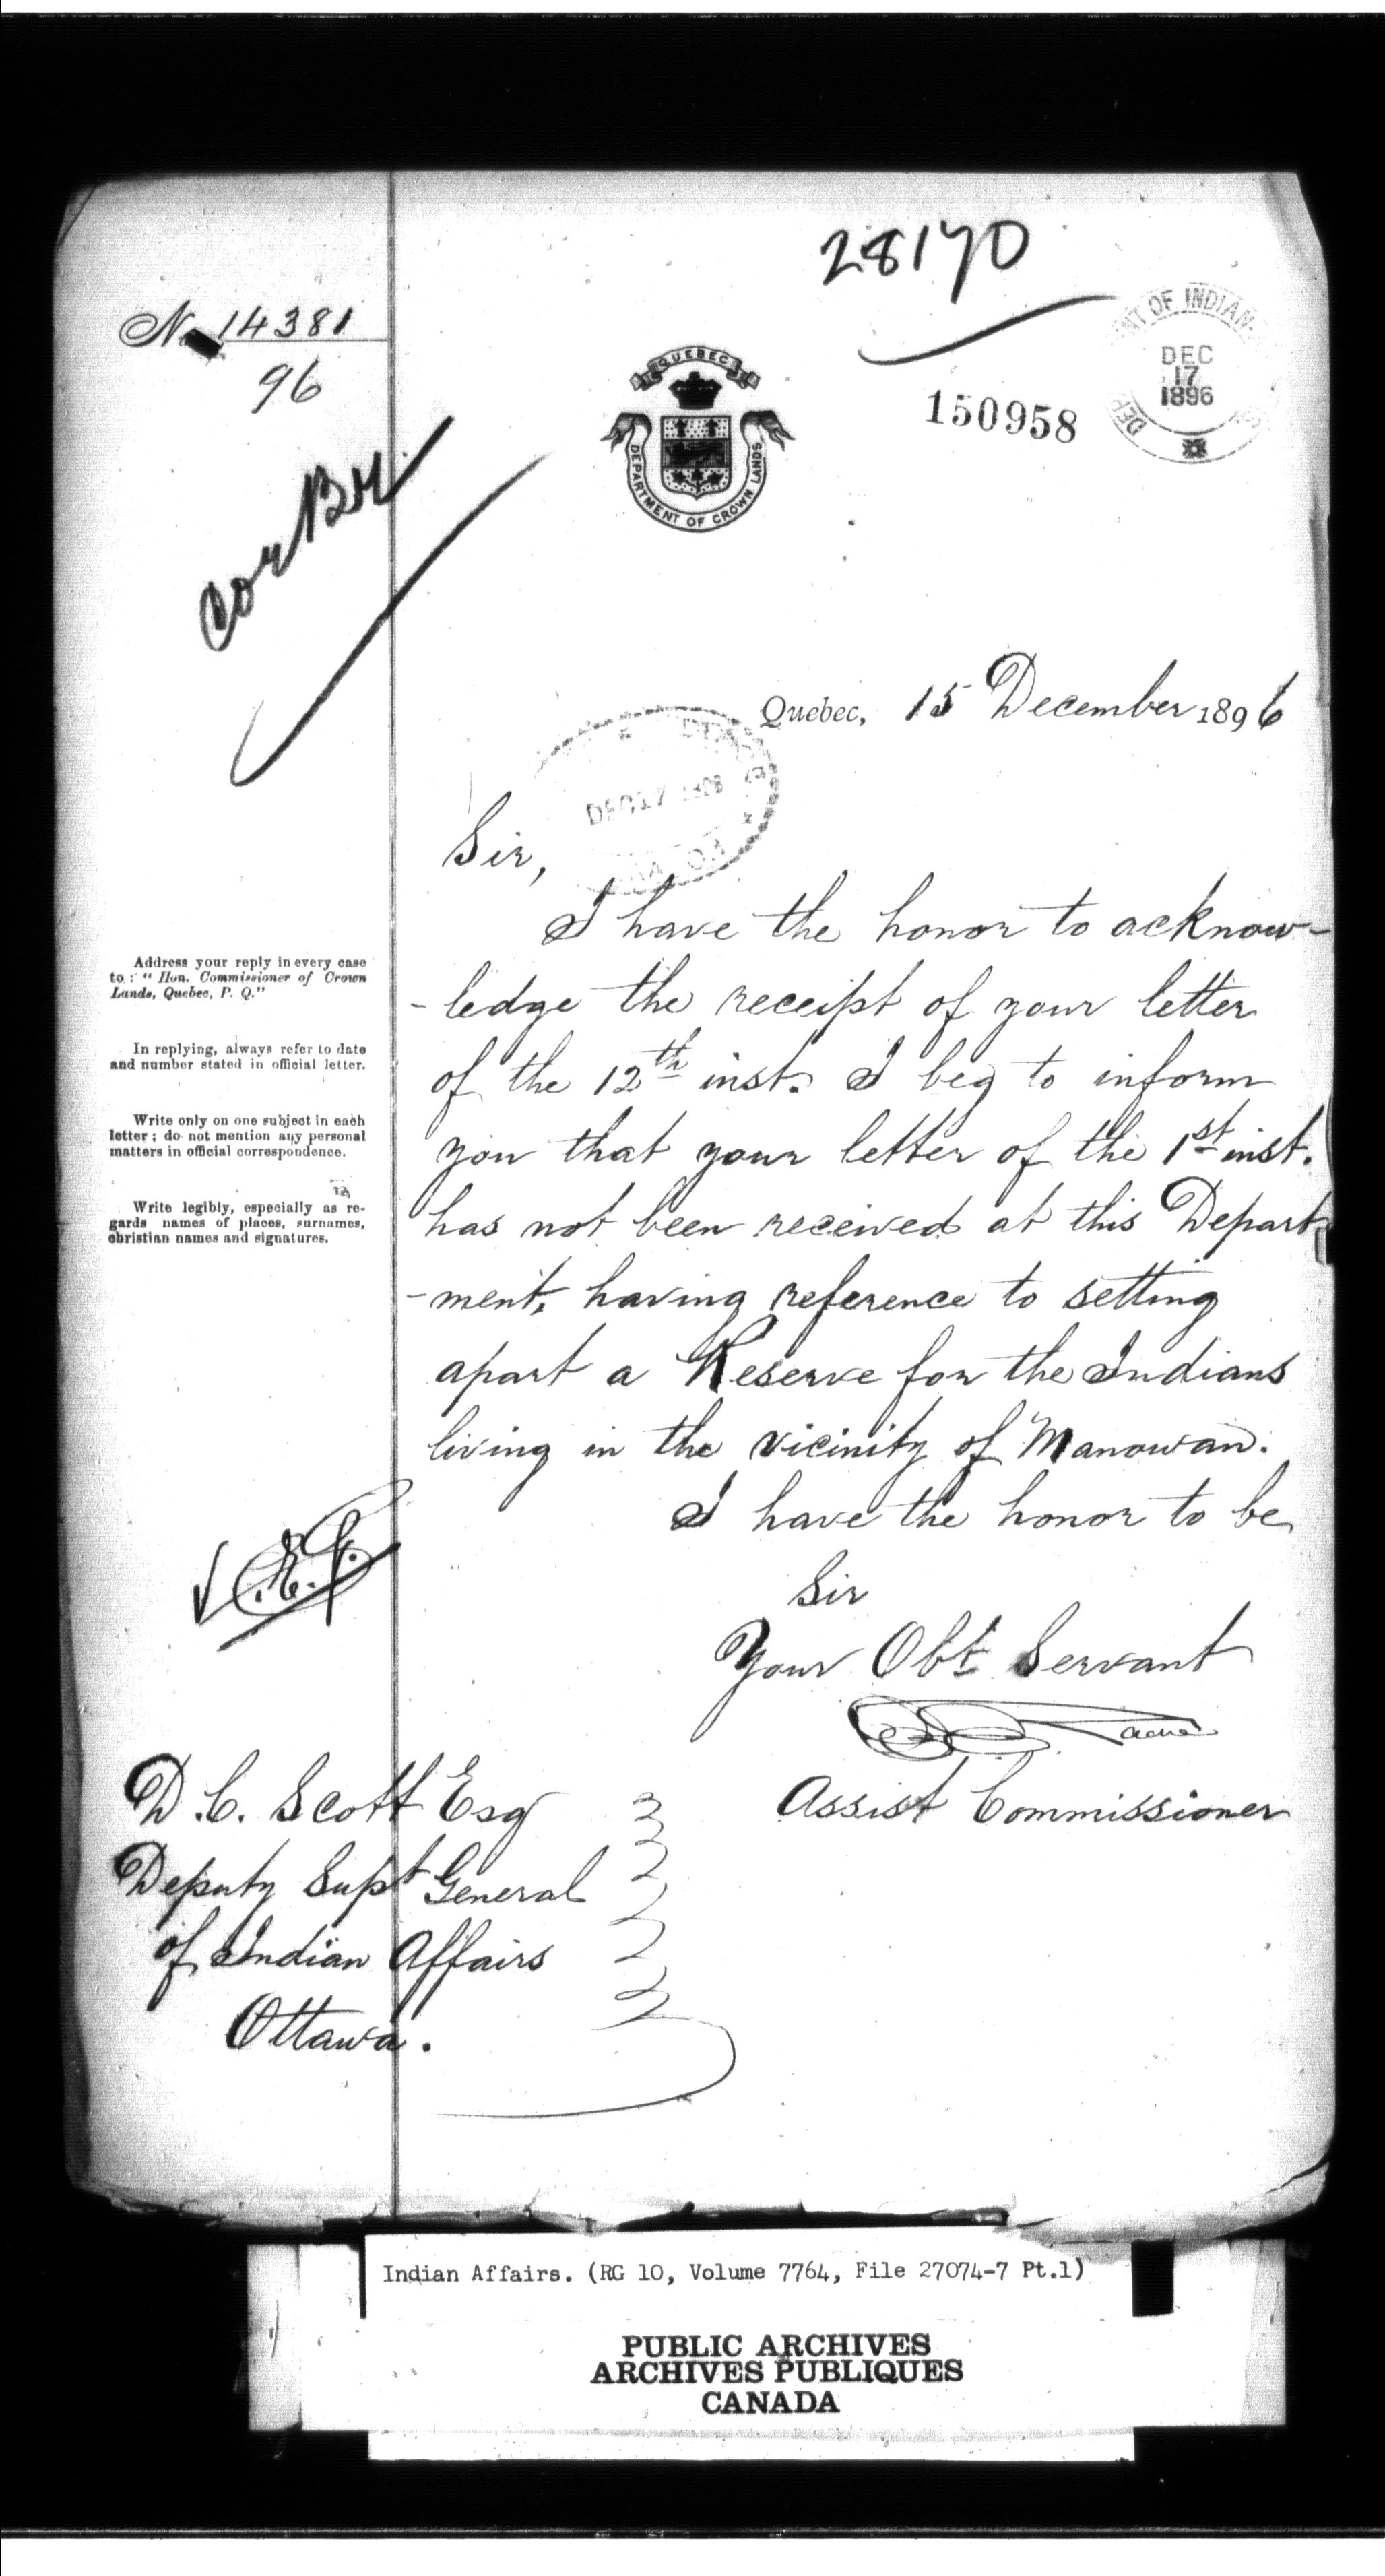 28170
No 14381
96
DEPARTMENT OF INDIAN
DEC
17
1896
150958
QUEBEC
DEPARTMENT OF CROWN LANDS
Cor Br
Quebec, 15 December 1896
DEC 17 1896
Sir,
I have the honor to acknow-
-ledge the receipt of your letter
of the 12th inst. I beg to inform
you that your letter of the 1st inst.
has not been received at this Depart-
-ment, having reference to setting
apart a Reserve for the Indians
living in the vicinity of Manowan.
I have the honor to be
Sir
Your Obt Servant
Tache
Assist Commissioner
Address your reply in every case
to : " Hon. Commissioner of Crown
Lands, Quebec, P. Q."
In replying, always refer to date
and number stated in official letter.
Write only on one subject in each
letter ; do not mention any personal
matters in official correspondence.
Write legibly, especially as re-
gards names of places, surnames,
christian names and signatures.
D. C. Scott Esq
Deputy Supt General
of Indian Affairs
Ottawa.
Indian Affairs. (RG 10, Volume 7764, File 27074-7 Pt.1)
PUBLIC ARCHIVES
ARCHIVES PUBLIQUES
CANADA